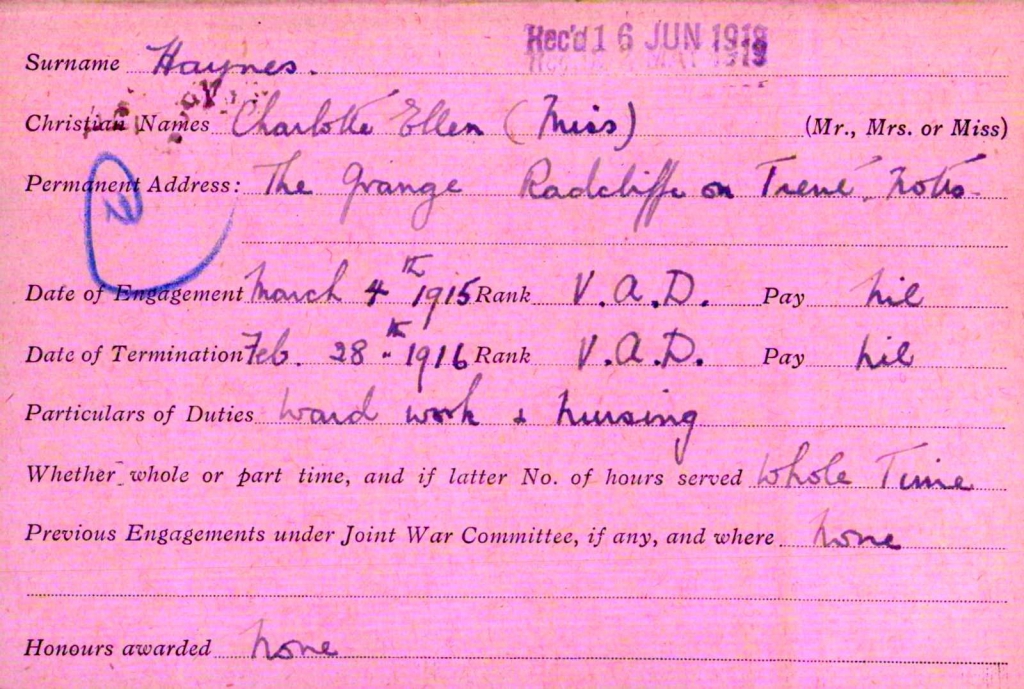 Rec'd 16 JUN 1919
Surname Haynes.
Christian Names Charlotte Ellen (Miss) (Mr., Mrs. or Miss)
Permanent Address: The Grange Radcliffe on Trent, Notts
Date of Engagement March 4th 1915 Rank V.A.D. Pay nil
Date of Termination Feb. 28th 1916 Rank V.A.D. Pay nil
Particulars of Duties Ward work & nursing
Whether whole or part time, and if latter No. of hours served Whole Time
Previous Engagements under Joint War Committee, if any, and where None
Honours awarded None